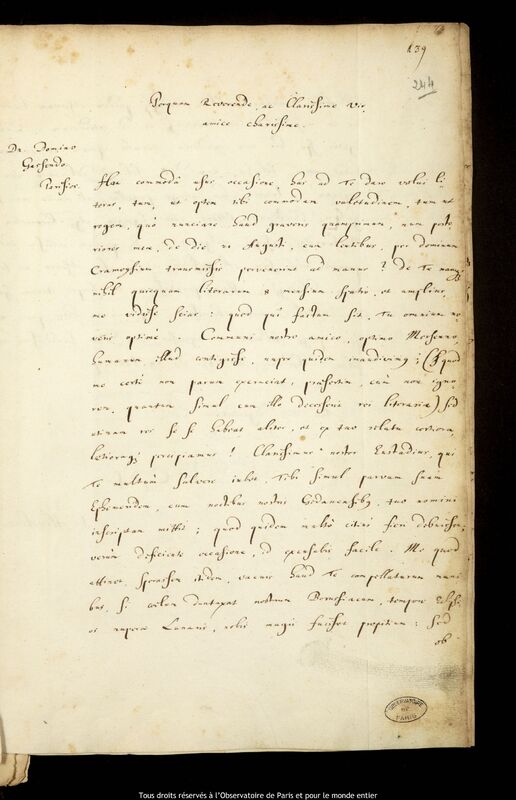 139
244
Perquam Reverende, ac Clarissime Vir,
amice charissime.
Dn. Domino
Gassendo
Parisios.
Hac commodâ usus occasione, has ad Te dare volui li-
teras, tum, ut optem tibi commodam valetudinem, tum ut
rogem, quò nunciare haud graveris quampimum, num poste-
riores meae, de die 21 Augusti, cum literibus, per dominum
Cramoysium transmissis pervenerint ad manus? De Te namq
nihil quicquam literarum 8 mensium spatio, et amplius,
me vidisse scias: quod qui factum sit, Tu omnium no-
veris optimè. Communi nostro amico, optimo Mersenno,
humanum illud contigisse, nuper quidem inaudivimus; (quod
me certè non parum excruciat, praesertim, cùm non igno-
rem, quantum simul cum illo decesserit rei literariae) sed
utinam res sese habeat aliter, et ex tuo relatu certiora,
laetioraq percipiamus! Clarissimus noster Eichstadius, qui
Te multùm salvere iubet, Tibi simul parvam suam
Ephemeridem, cum noctibus nostris Gedanensibus, tuo nomini
inscriptam mittit; quod quidem multò citius fieri debuisset,
verùm deficiente occasione, id excusabis facile. Me quod
attinet, sperassem itidem, vacuis haud Te compellaturum mani-
bus, si coelum duntaxat nostrum Borussiacum, tempore Eclips-
is nuperae Lunaris, nobis magis fuisset propitium: sed
ob
OBSERVATOIRE
DE
PARIS
Tous droits réservés à l'Observatoire de Paris et pour le monde entier